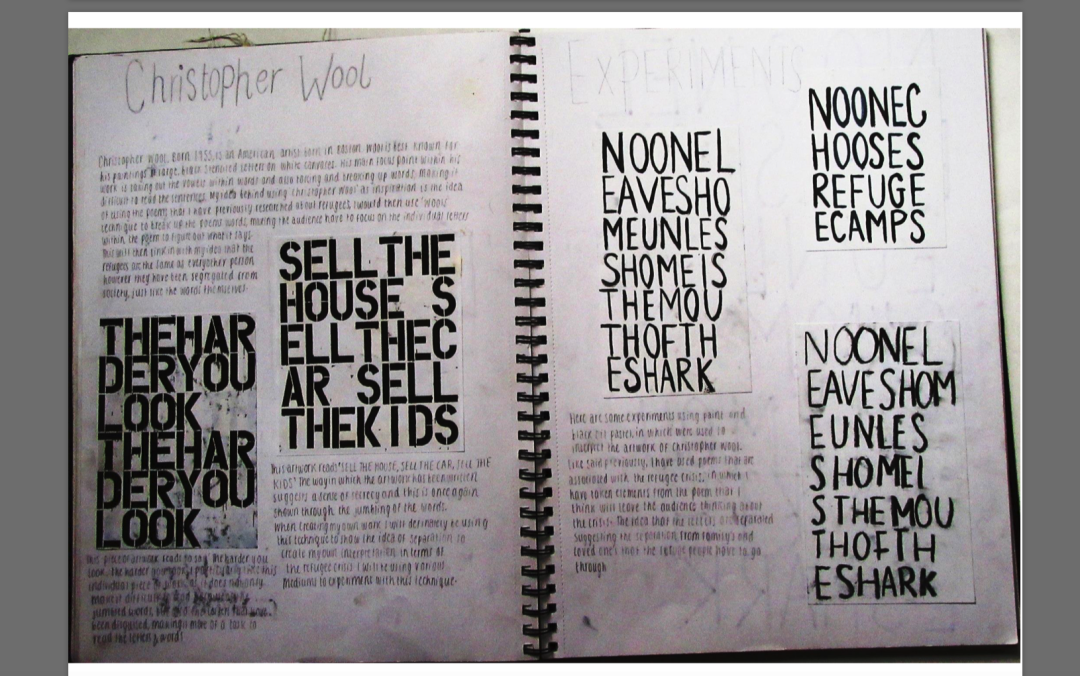 Christopher Wool
Christopher Wool, born 1955, is an American artist born in Boston. Wool is best known for
his paintings of large, black stenciled letters on white canvases. His main focus point within his
work is taking out the vowels within words and also taking and breaking up words, making it
difficult to read the sentences. My idea behind using Christopher Wool as inspiration is the idea
of using the poems that I have previously researched about refugees, I would then use 'Wools'
technique to break up the poems words, making the audience have to focus on the individual letters
within the poem to figure out what it says.
This will then link in with my idea that the
refugees are the same as everyother person
however they have been segregated from
society, just like the words themselves.
SELLTHE
HOUSE S
ELLTHEC
AR SELL
THEKIDS
THEHAR
DERYOU
LOOK
THEHAR
DERYOU
LOOK
This artwork reads "SELL THE HOUSE, SELL THE CAR, SELL THE
KIDS" The way in which the artwork has been
suggests a sense of secrecy and this is once again
shown through the jumbling of the words.
When creating my own work I will definately be using
this technique to show the idea of separation to
create my own interpretation in terms of
the refugee crisis. I will be using various
mediums to experiment with this technique.
This piece of artwork reads to say "The harder you
look, the harder you look"
individual piece
jumbled words,
been disguised, making it more of a task to
read the letters & words
EXPERIMENTS
NOONEL
EAVESHO
MEUNLES
SHOMEIS
THEMOU
THOFTH
ESHARK
NOONEC
HOOSES
REFUGE
ECAMPS
Here are some experiments using paint and
black oil pastel, in which were used to
interpret the artwork of Christopher Wool.
Like said previously, I have used poems that are
associated with the refugee crisis, in which I
have taken elements from the poem that I
think will leave the audience thinking about
the crisis. The idea that the letters are separated
suggesting the separation from family's and
loved one's that the refugee people have to go
through
NOONEL
EAVESHOM
EUNLES
SHOMEI
STHEMOU
THOFTH
ESHARK